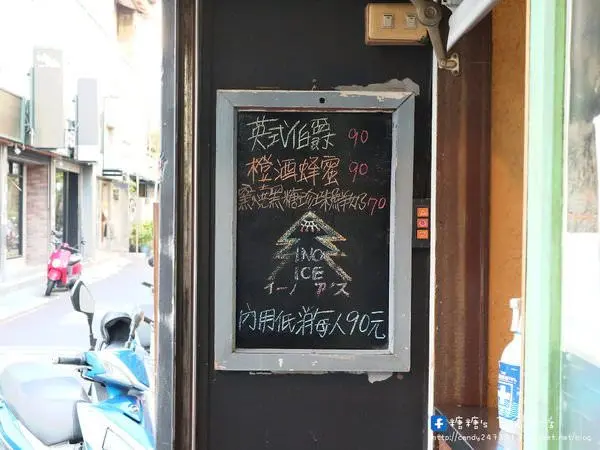 英式伯爵 90
橙酒蜂蜜 90
窯燒黑糖珍珠鮮奶 $70
INO
ICE
イーノ アイス
內用低消每人90元
糖糖's